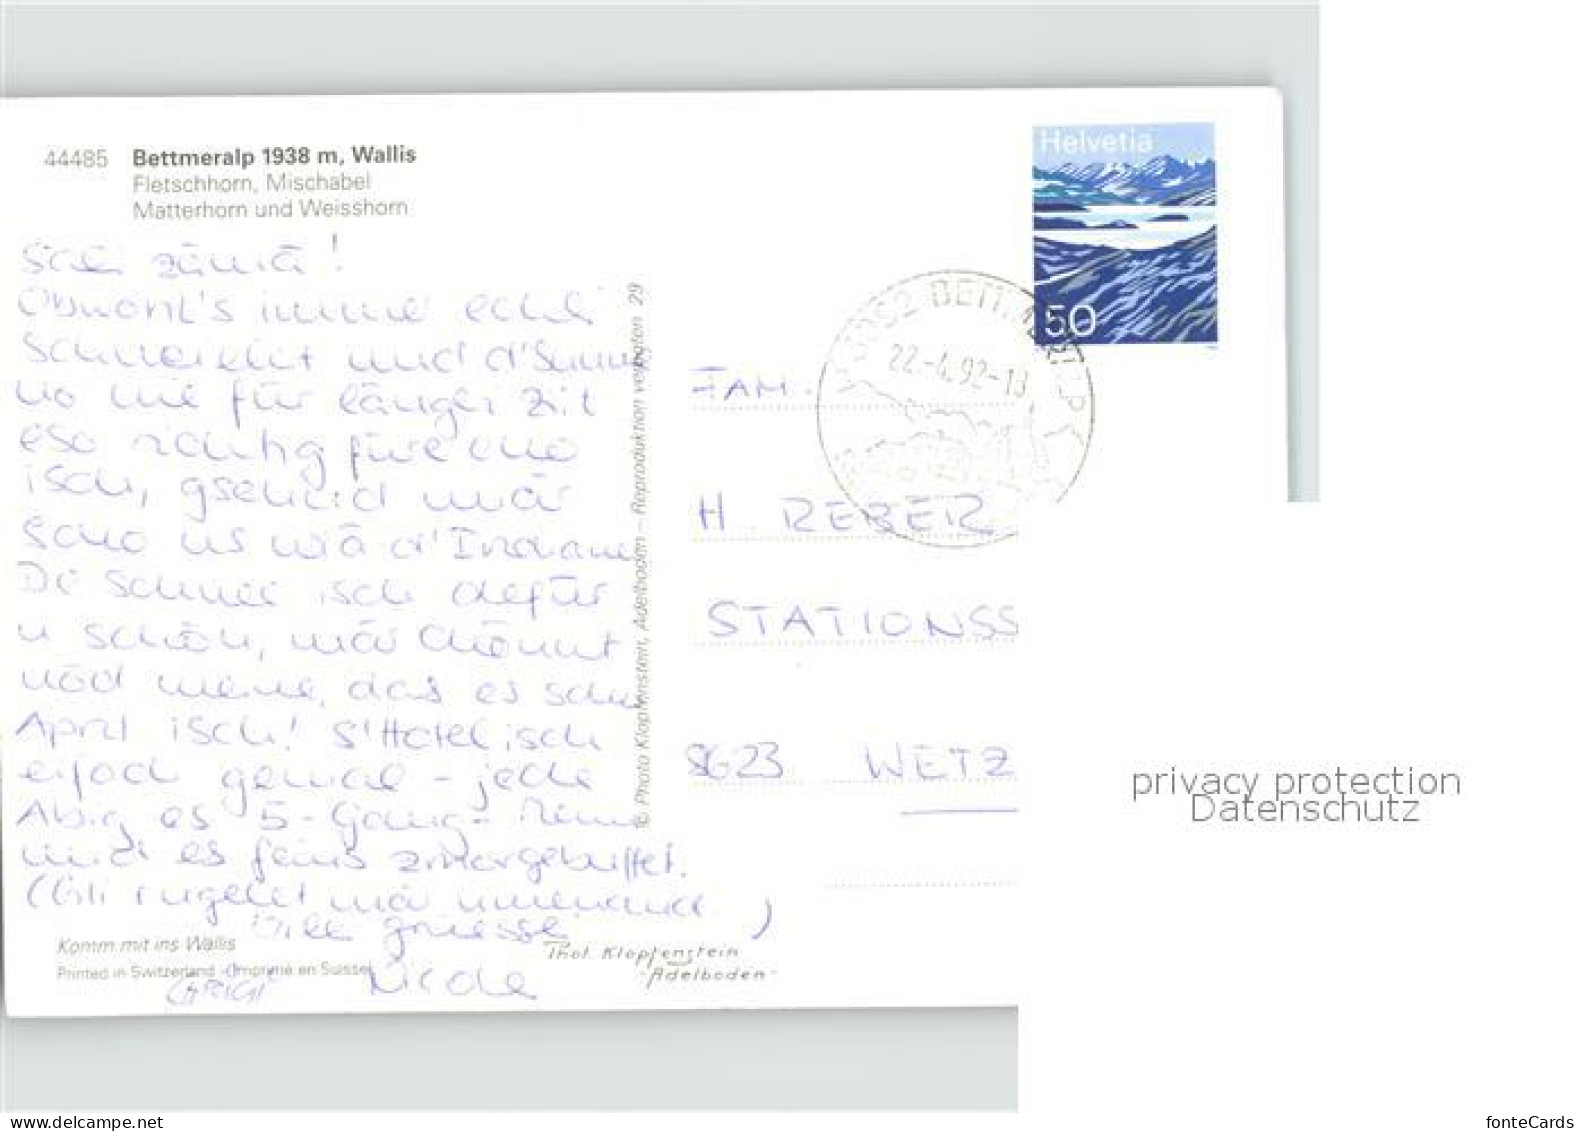 44485 Bettmeralp 1938 m, Wallis
Fletschhorn, Mischabel
Matterhorn und Weisshorn
zämä!
immer echli
und d'Sunne
no nie für länger Zit
richtig füre cho
isch, gsehnd mär
scho us wiä d'Indianer
De Schnee isch defür
u schön, mär chönnt
nöd meine, das es scho
April isch! s'Hotel isch
eifach genial - jede
Abig es 5-Gang-
und es feins zmorgebuffet.
(Gli rugelet mär umenand)
Vill grüessli
Nicole
Komm mit ins Wallis
Printed in Switzerland - Imprimé en Suisse
Phot. Klopfenstein
Adelboden
© Photo Klopfenstein, Adelboden – Reproduktion verboten 29
Helvetia
50
22.-4.92-18
FAM.
H. REBER
STATIONSS
8623 WETZ
privacy protection
Datenschutz
fonteCards